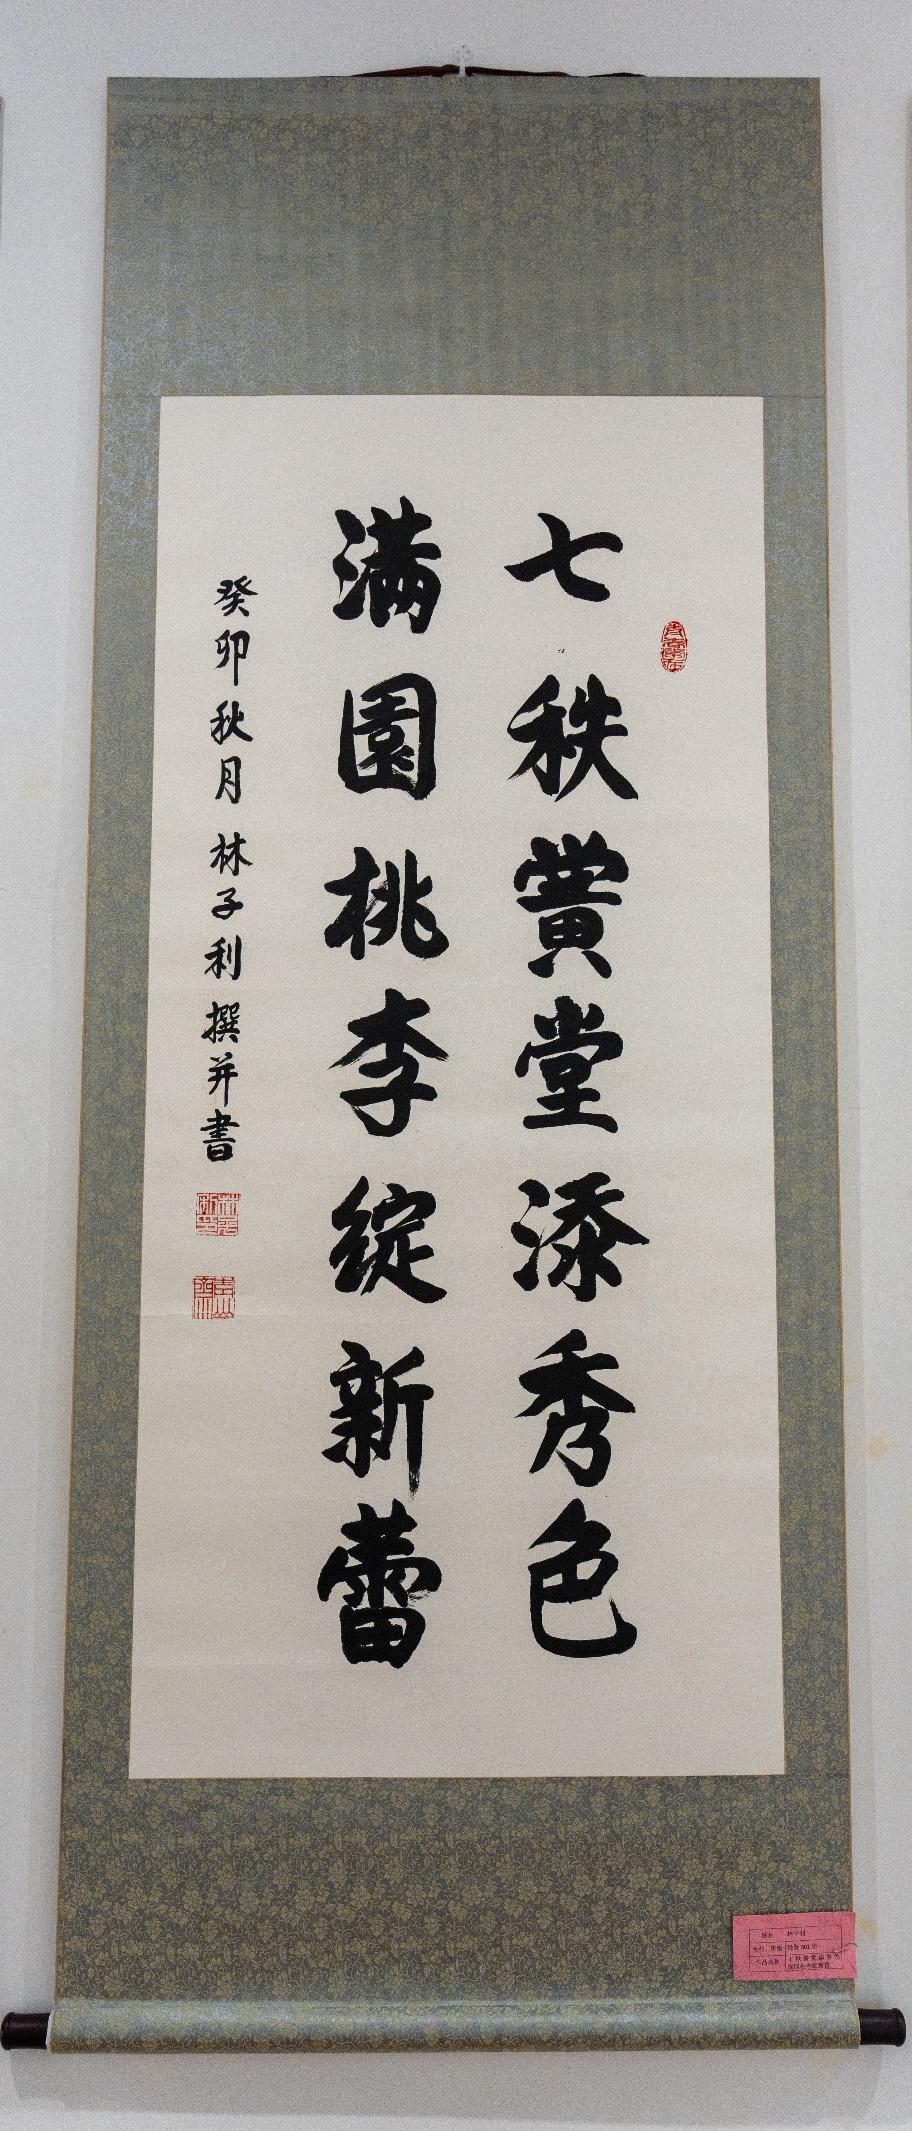 七秩黌堂添秀色
满園桃李綻新蕾
癸卯秋月林子利撰并書
姓名